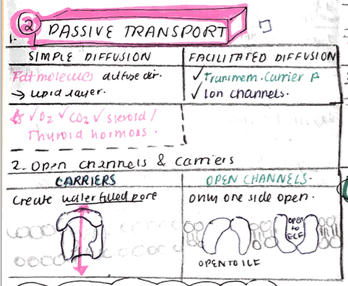 2 PASSIVE TRANSPORT
1.
SIMPLE DIFFUSION
FACILITATED DIFFUSION
Fat molecules difuse dir.
→ lipid layer.
✓ Transmem. Carrier P
✓ Ion channels.
✓ O2 ✓ CO2 ✓ steroid /
Thyroid hormons.
2. Open channels & carriers
CARRIERS
OPEN CHANNELS.
Create water filled pore
only one side open.
OPEN TO ECF
OPEN TO ICF